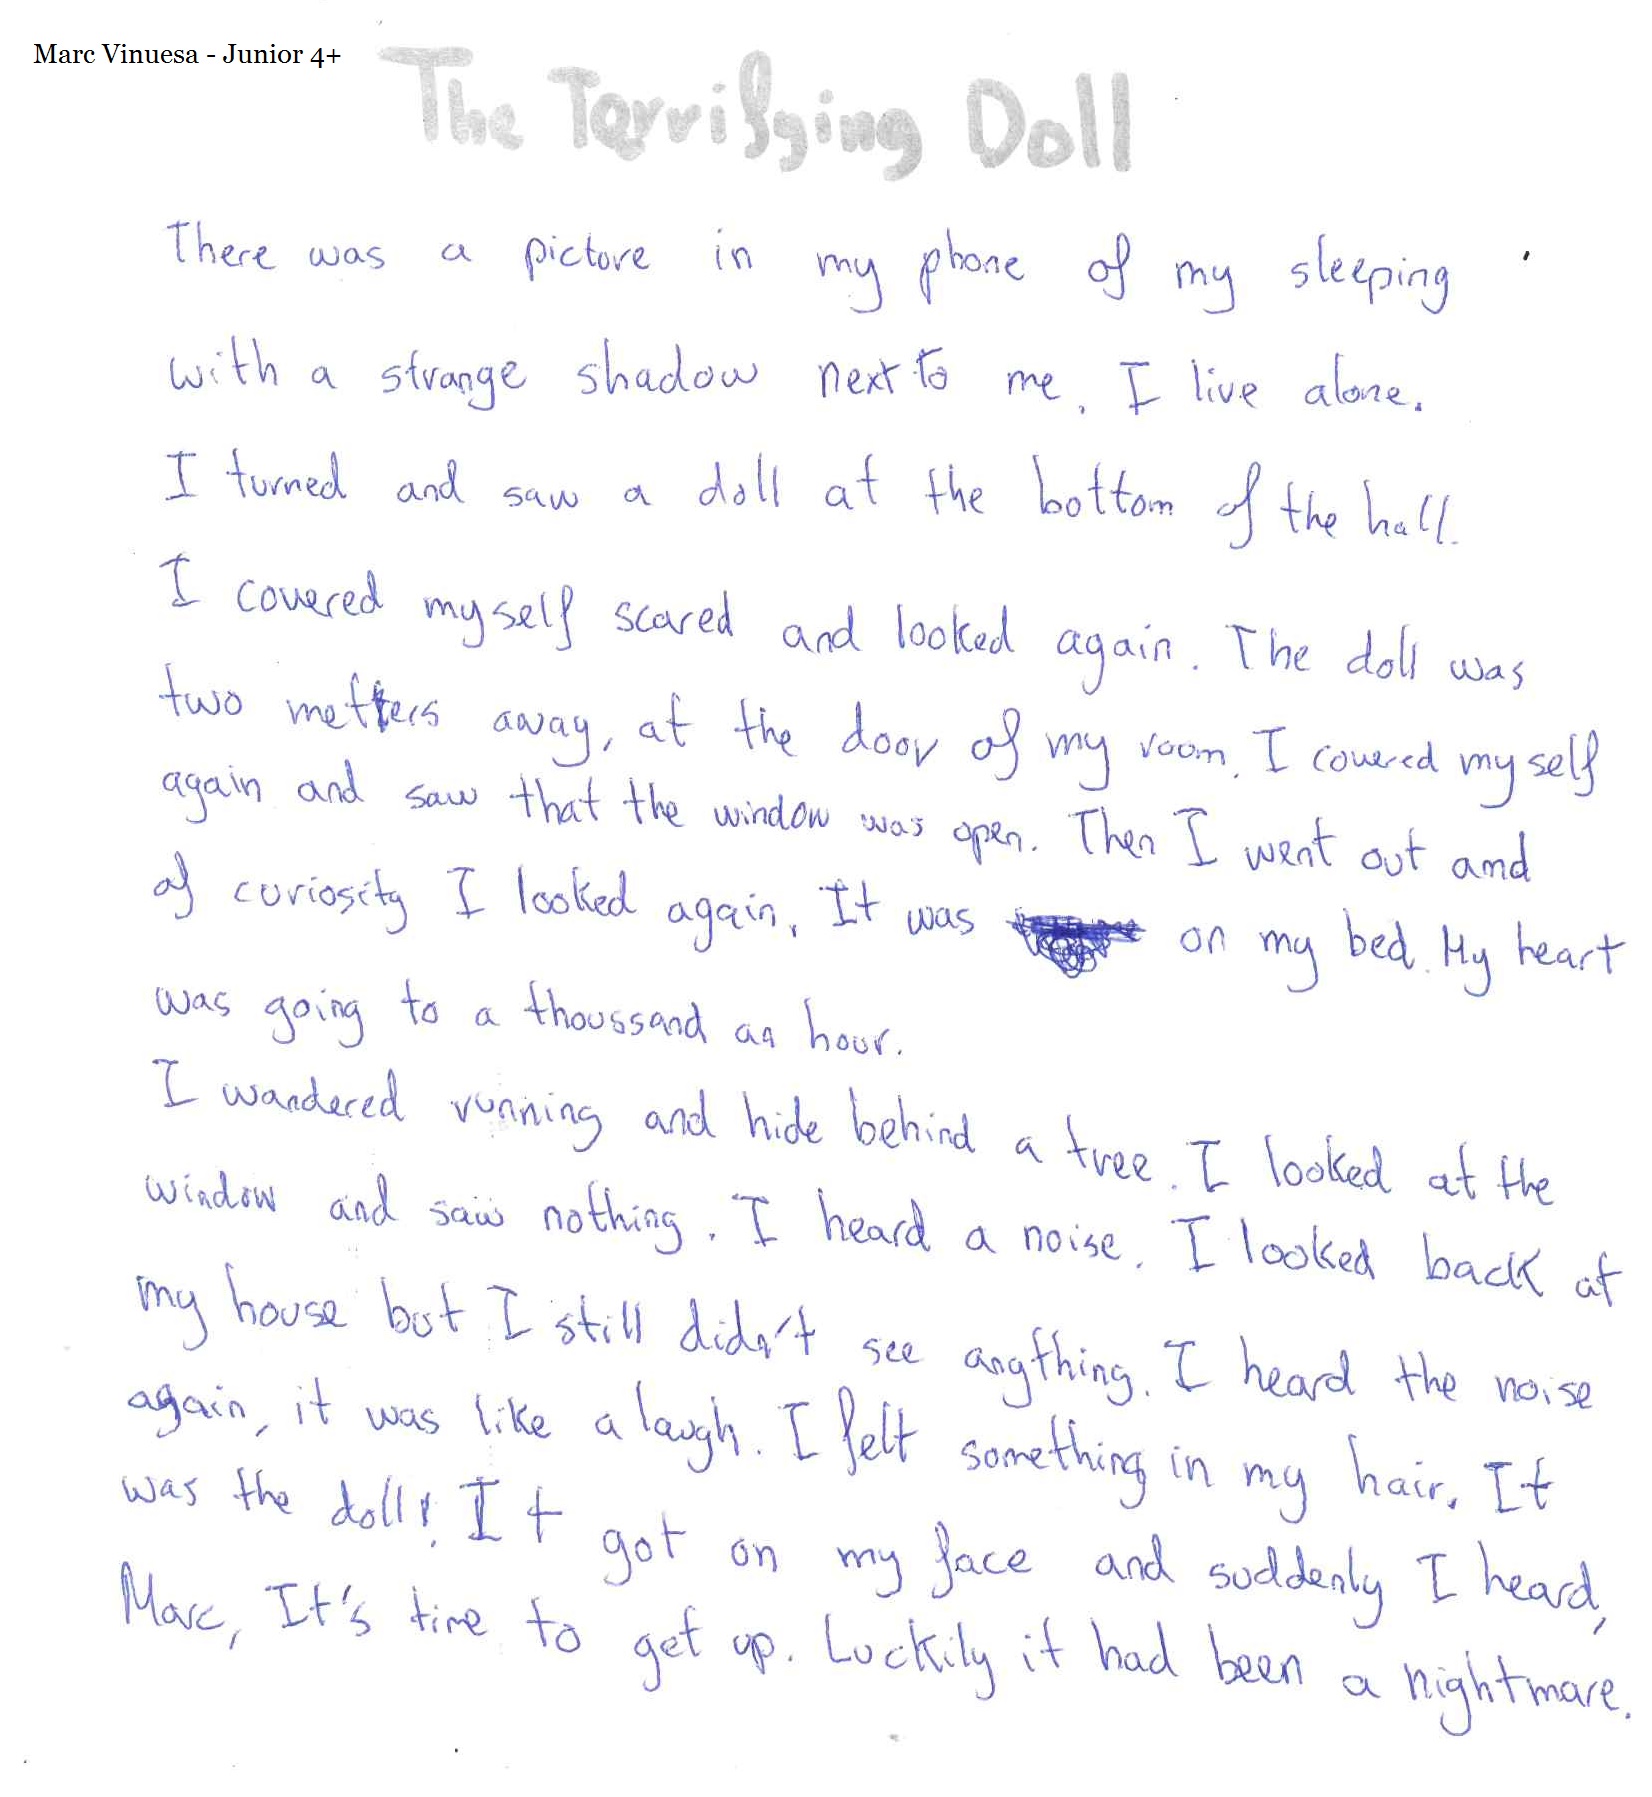 Marc Vinuesa - Junior 4+
The Terrifying Doll
There was a picture in my phone of my sleeping
with a strange shadow next to me. I live alone.
I turned and saw a doll at the bottom of the hall.
I covered myself scared and looked again. The doll was
two metters away, at the door of my room. I covered myself
again and saw that the window was open. Then I went out and
of curiosity I looked again. It was on my bed. My heart
was going to a thoussand an hour.
I wandered running and hide behind a tree. I looked at the
window and saw nothing. I heard a noise. I looked back at
my house but I still didn't see angthing. I heard the noise
again, it was like a laugh. I felt something in my hair. It
was the doll! It got on my face and suddenly I heard,
Marc, It's time to get up. Luckily it had been a nightmare.